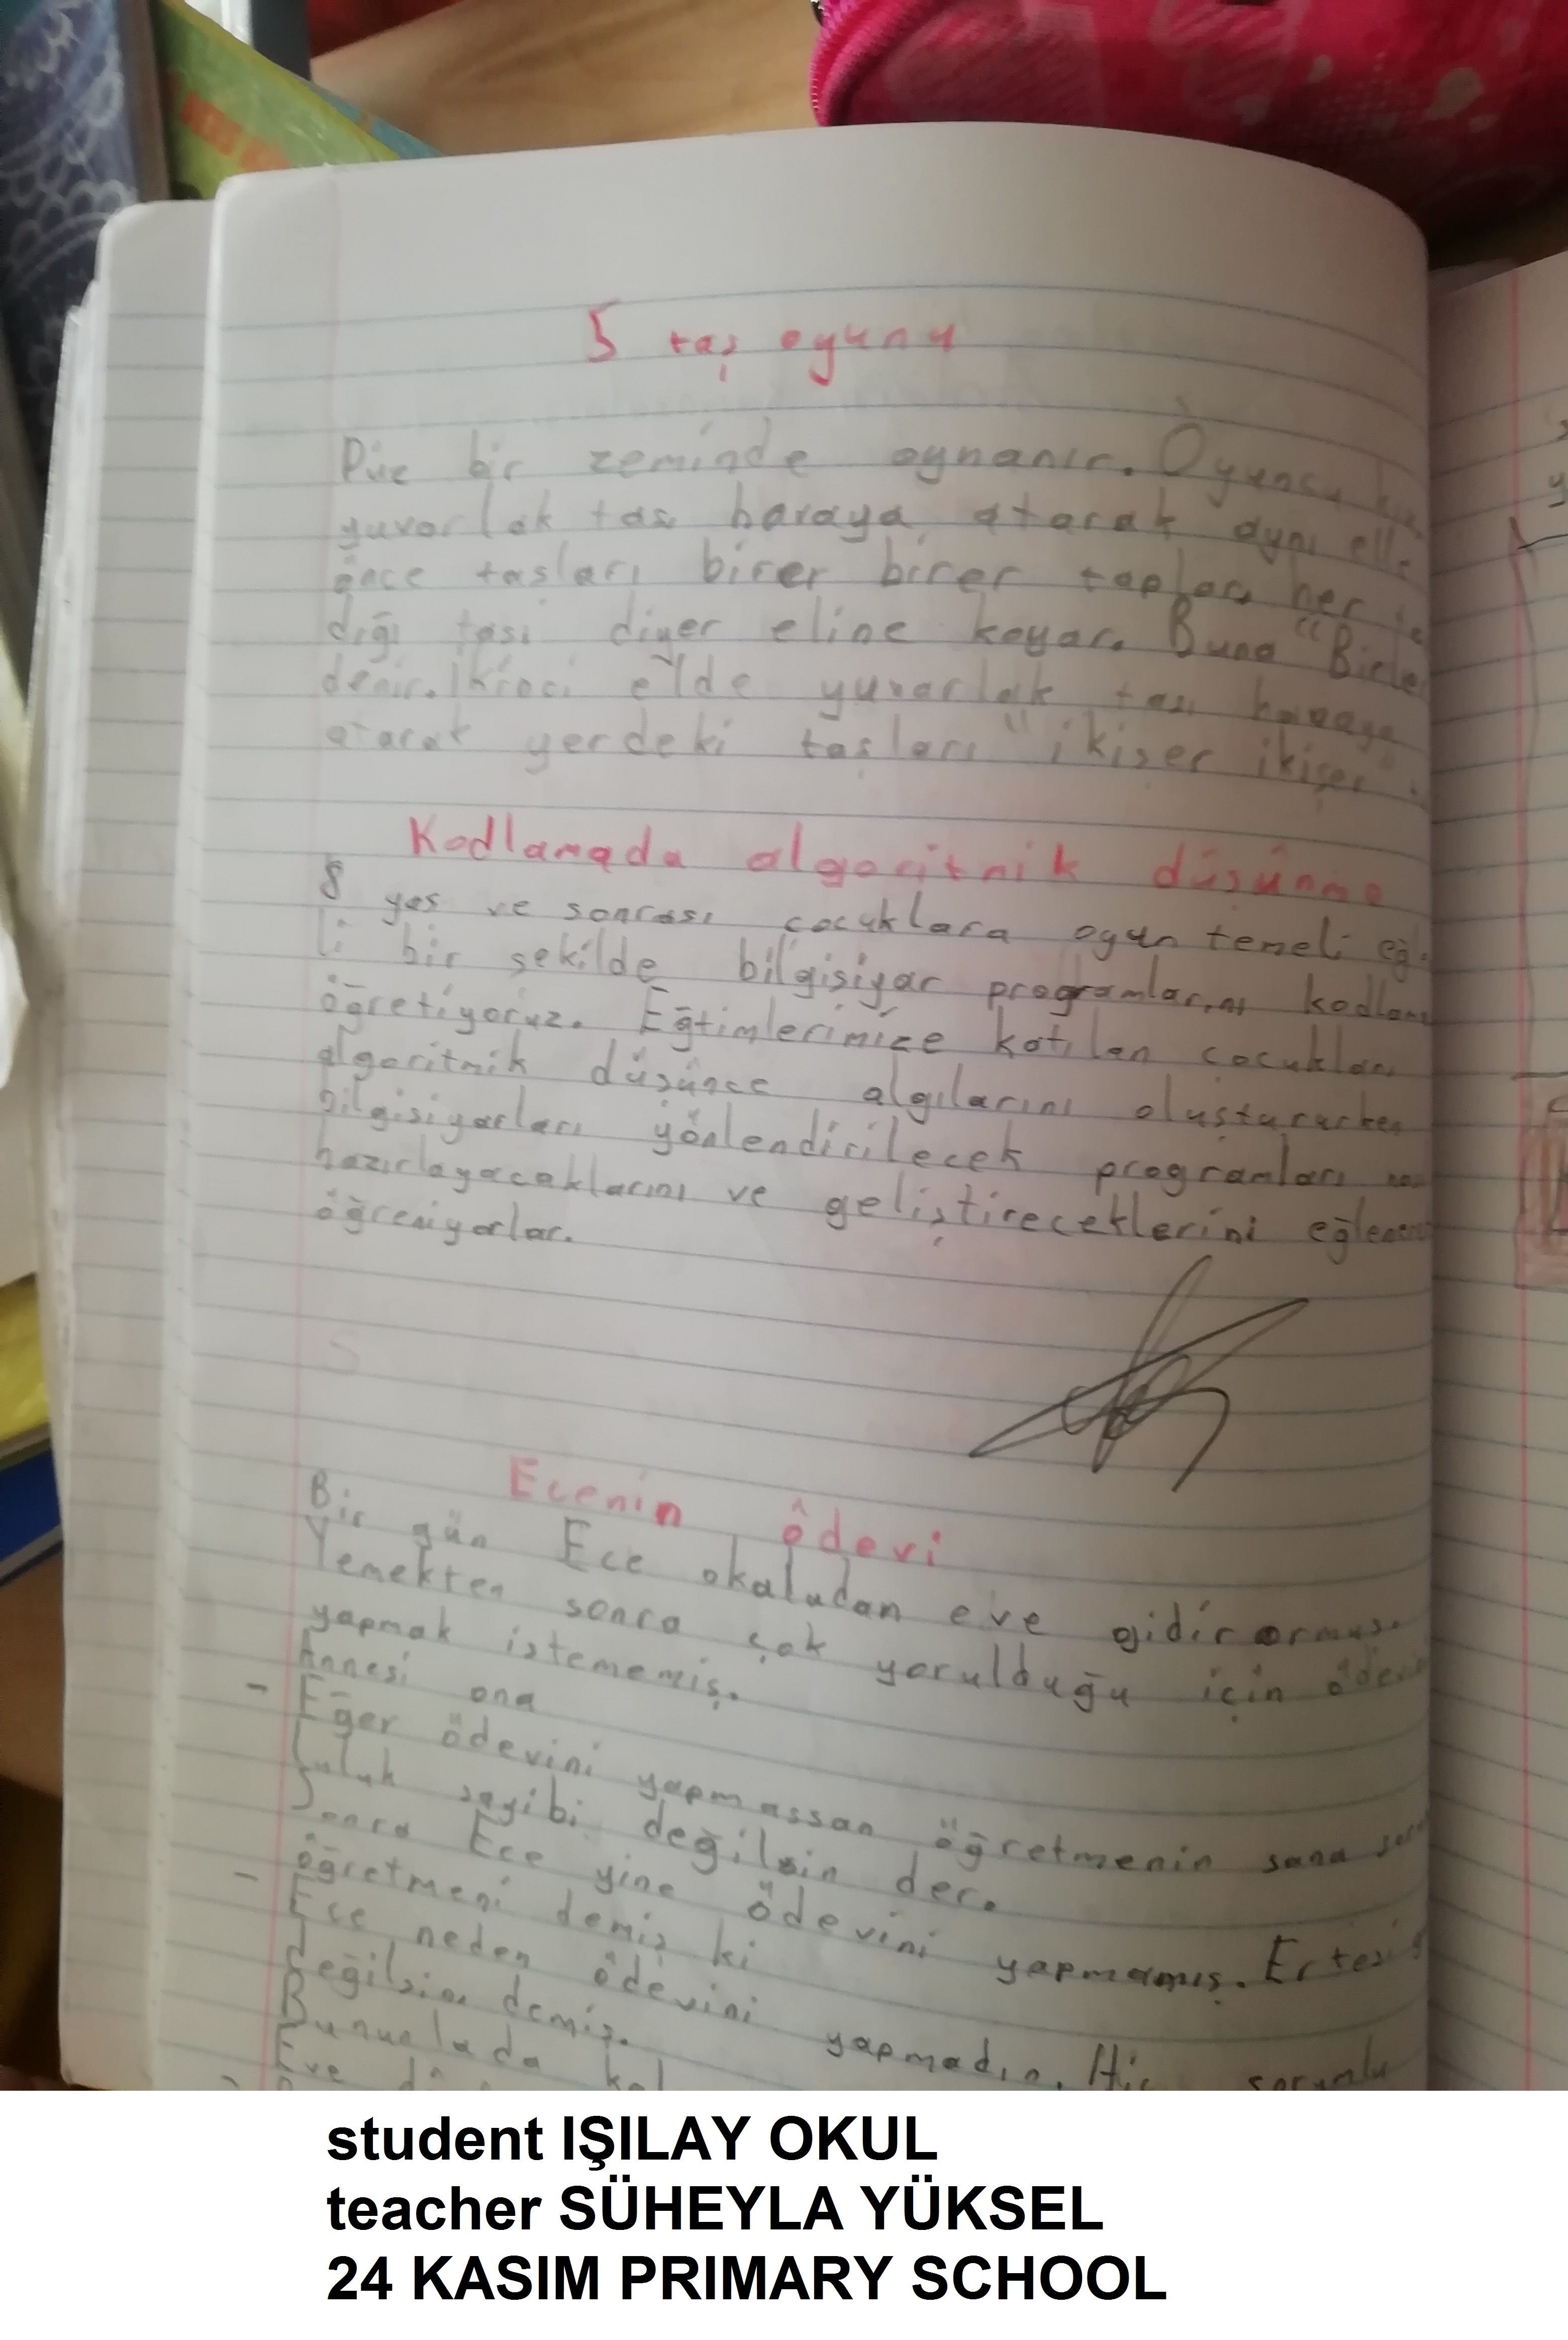 5 taş oyunu
Düz bir zeminde oynanır. Oyuncu
yuvarlak taşı havaya atarak aynı
önce taşları birer birer toplar, her
dığı taşı diyer eline koyar. Buna "Birle
denir. İkinci elde yuvarlak taşı havaya
atarak yerdeki taşları "ikişer ikişer"
Kodlamada algoritmik düşünme
8 yaş ve sonrası çocuklara oyun temeli eğ
li bir şekilde bilgisiyar programlarını kodlama
öğretiyoruz. Eğtimlerimize katılan çocukları
algoritmik düşünce algılarını oluştururken
bilgisiyarları yönlendirilecek programları
hazırlayacaklarını ve geliştireceklerini eğlenerek
öğreniyorlar.
Ecenin ödevi
Bir gün Ece okaludan eve
Yemekten sonra çok yorulduğu için ödevini
yapmak istememiş.
Annesi ona
- Eğer ödevini yapmassan öğretmenin sana
luluk sayibi değilsin der.
Sonra Ece yine ödevini yapmamış. Ertesi
öğretmeni demiş ki
- Ece neden ödevini yapmadın. Hiç sorumlu
değilsin demiş.
Bununlada
Eve
student IŞILAY OKUL
teacher SÜHEYLA YÜKSEL
24 KASIM PRIMARY SCHOOL